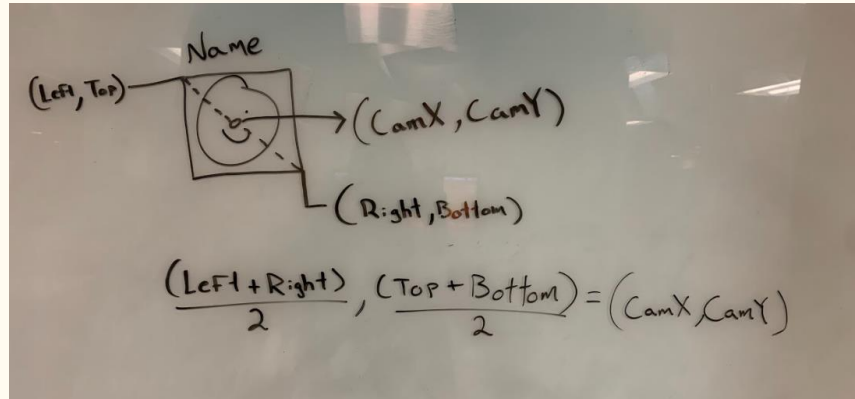 Name
(Left, Top)
(CamX, CamY)
(Right, Bottom)
(Left + Right)/2, (Top + Bottom)/2 = (CamX, CamY)